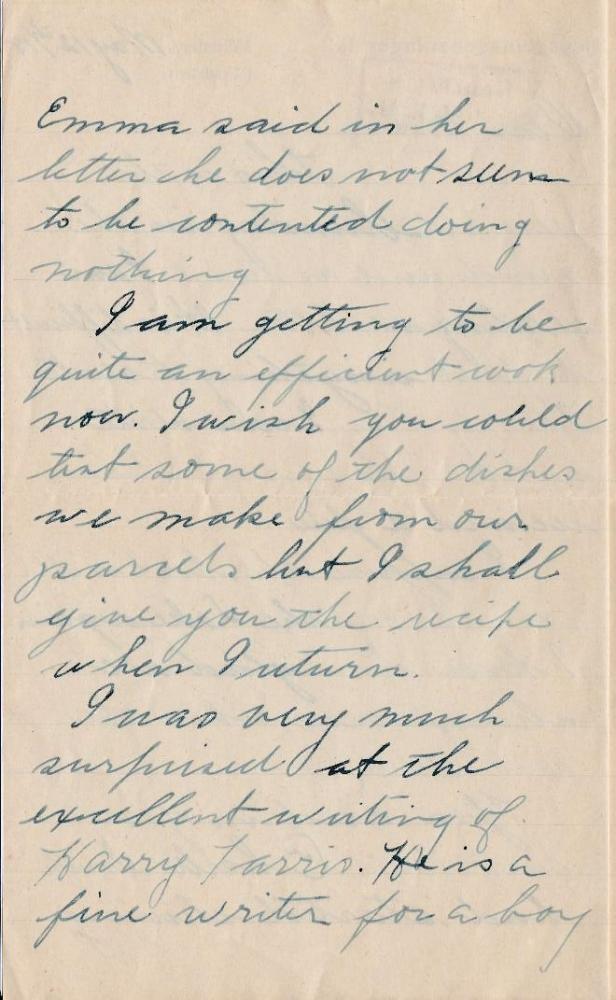 Emma said in her
letter she does not seem
to be contented doing
nothing
I am getting to be
quite an efficient cook
now. I wish you could
test some of the dishes
we make from our
parcels but I shall
give you the recipe
when I return.
I was very much
surprised at the
excellent writing of
Harry Farris. He is a
fine writer for a boy